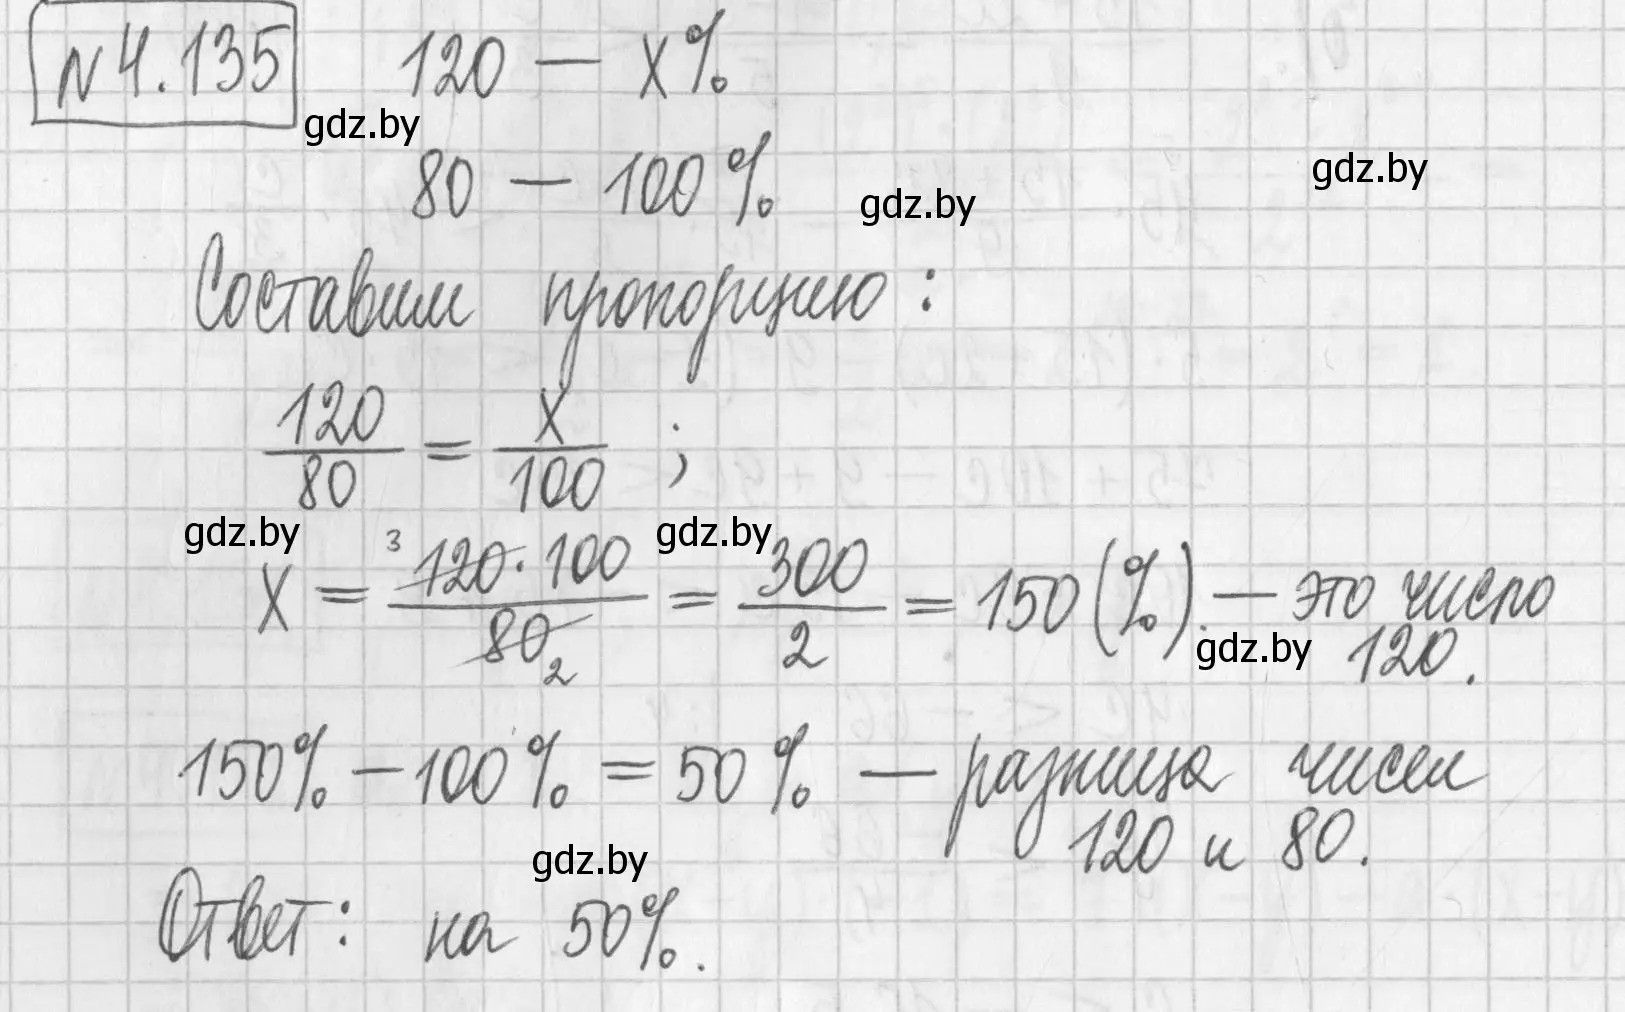 № 4.135 120 — x%
gdz.by
80 — 100%
gdz.by
gdz.by
Составим пропорцию:
120/80 = x/100 ;
gdz.by gdz.by
x = 3 120·100 / 80 2 = 300/2 = 150 (%). — это число
gdz.by 120.
150% − 100% = 50% — разница чисел
120 и 80.
gdz.by
Ответ: на 50%.